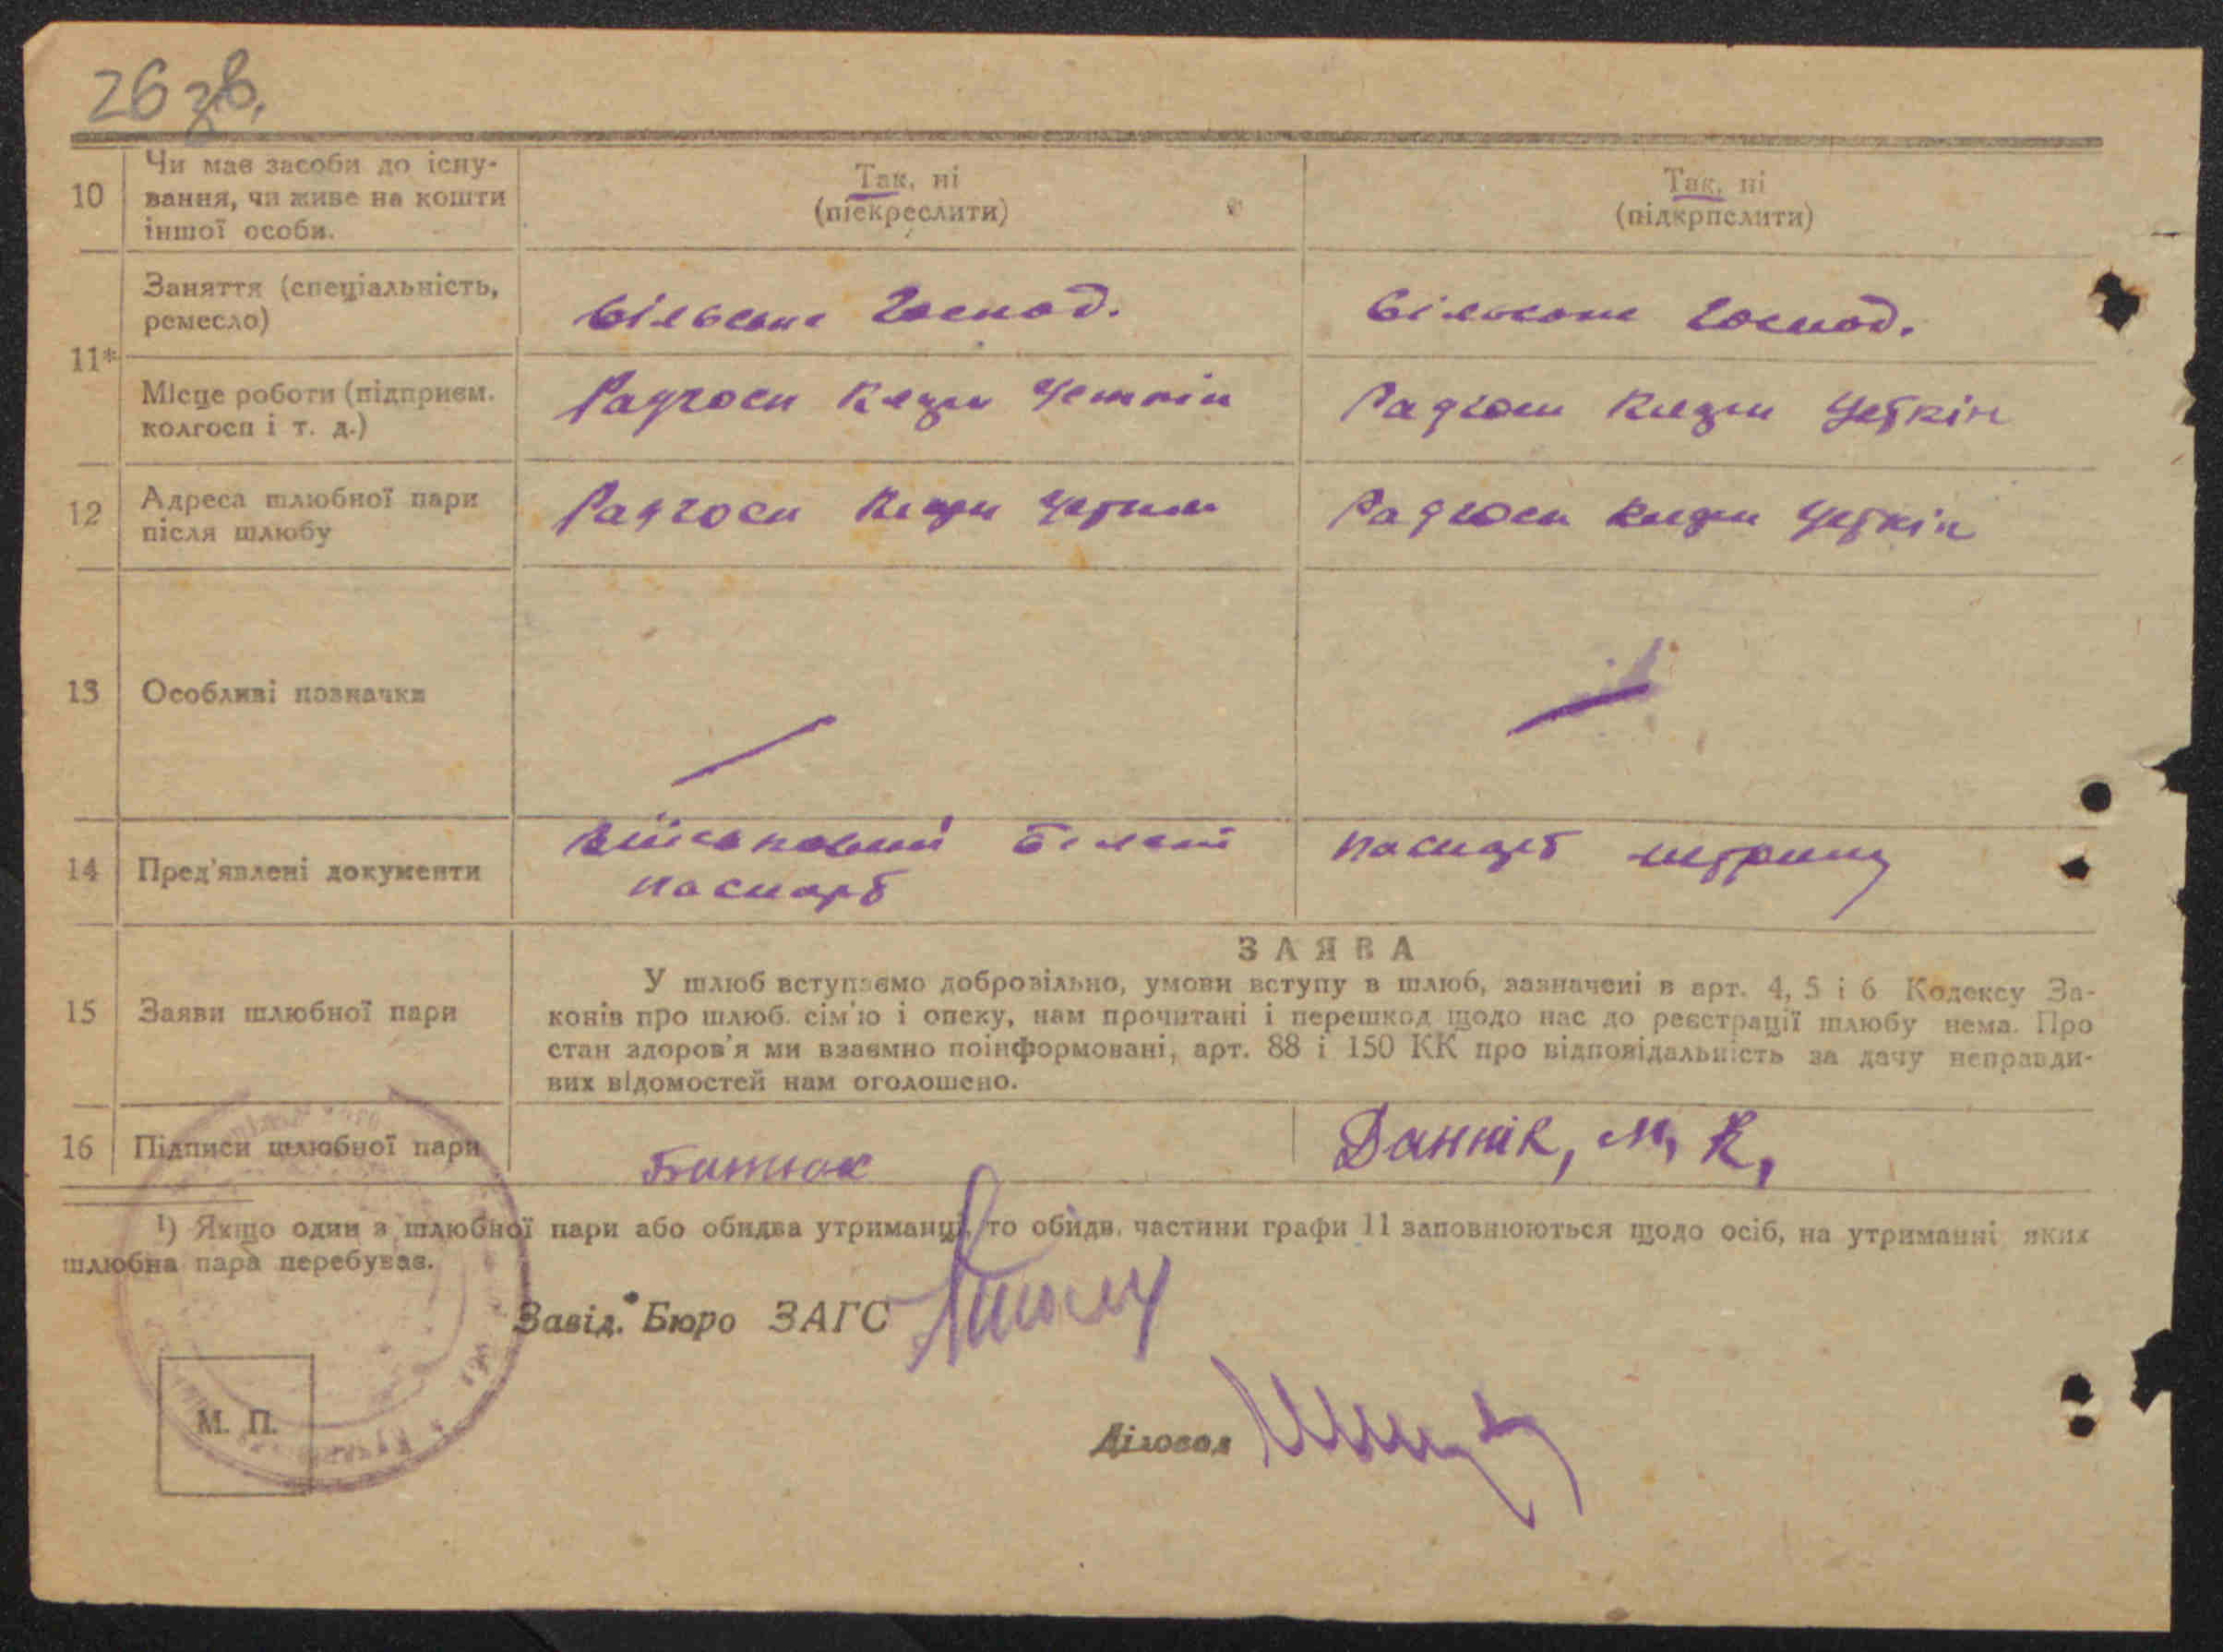 26 зв.
10
Чи має засоби до існу-
вання, чи живе на кошти
іншої особи.
Так, ні
(піекреслити)
Так, ні
(підкрпслити)
11*
Заняття (спеціальність,
ремесло)
сільське господ.
сільське господ.
Місце роботи (підприєм.
колгосп і т. д.)
Радгосп Клари Цеткін
Радгосп Клари Цеткін
12
Адреса шлюбної пари
після шлюбу
Радгосп Клари Цеткін
Радгосп Клари Цеткін
13
Особливі позначки
14
Пред'явлені документи
військовий білет
паспорт
паспорт метрику
15
Заяви шлюбної пари
ЗАЯВА
У шлюб вступаємо добровільно, умови вступу в шлюб, зазначені в арт. 4, 5 і 6 Кодексу За-
конів про шлюб. сім'ю і опеку, нам прочитані і перешкод щодо нас до реєстрації шлюбу нема. Про
стан здоров'я ми взаємно поінформовані, арт. 88 і 150 КК про відповідальність за дачу неправди-
вих відомостей нам оголошено.
16
Підписи шлюбної пари
Данник, М, К,
¹) Якщо один з шлюбної пари або обидва утриманці, то обидв. частини графи 11 заповнюються щодо осіб, на утриманні яких
шлюбна пара перебуває.
Завід. Бюро ЗАГС
Діловод
М. П.